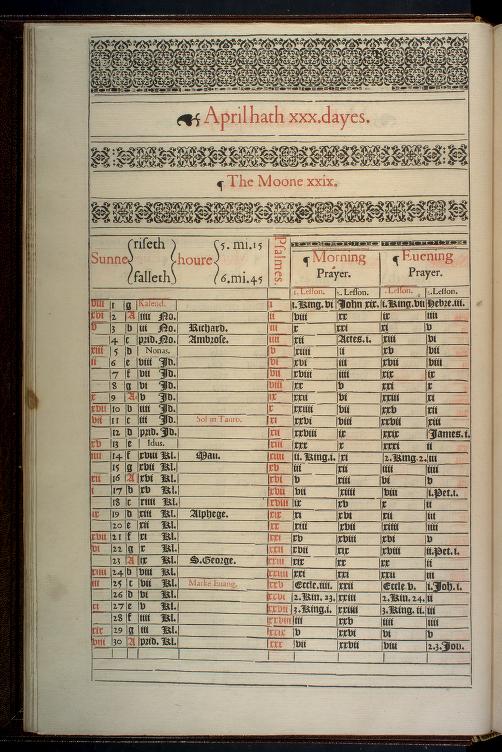 April hath xxx.dayes.
¶ The Moone xxix.
Sunne riseth houre 5. mi.15
falleth 6.mi.45
Psalmes.
¶ Morning Prayer.
¶ Euening Prayer.
1. Lesson. 2. Lesson. 1. Lesson. 2. Lesson.
1 g Kalend. i 1. King. vi John xix. 1. King. vii Hebre. iii.
xvi 2 A iiii No. ii viii xx ix iiii
v 3 b iii No. Richard. iii x xxi xi v
4 c prid. No. Ambrose. iiii xii Actes. i. xiii vi
xiii 5 d Nonas. v xiiii ii xv vii
ii 6 e viii Id. vi xvi iii xvii viii
7 f vii Id. vii xviii iiii xix ix
8 g vi Id. viii xx v xxi x
x 9 A v Id. ix xxii vi xxiii xi
10 b iiii Id. x xxiiii vii xxv xii
vii 11 c iii Id. Sol in Tauro. xi xxvi viii xxvii xiii
12 d prid. Id. xii xxviii ix xxix James. i.
xv 13 e Idus. xiii xxx x xxxi ii
iiii 14 f xviii Kl. Maii. xiiii ii. King. i. xi King. 2. iii
15 g xvii Kl. xv iii xii iiii iiii
xii 16 A xvi Kl. xvi v xiii vi v
i 17 b xv Kl. xvii vii xiiii viii i. Pet. i.
18 c xiiii Kl. xviii ix xv x ii
ix 19 d xiii Kl. Alphege. xix xi xvi xii iii
20 e xii Kl. xx xiii xvii xiiii iiii
xvii 21 f xi Kl. xxi xv xviii xvi v
vi 22 g x Kl. xxii xvii xix xviii ii. Pet. i.
23 A ix Kl. S. George. xxiii xix xx xx ii
xiiii 24 b viii Kl. xxiiii xxi xxi xxii iii
iii 25 c vii Kl. Marke Euang. xxv Eccle. iiii. xxii Eccle v. i. Joh. i.
26 d vi Kl. xxvi 2. Kin. 23. xxiii 2. Kin. 24. ii
xi 27 e v Kl. xxvii 3. King. i. xxiiii 3. King. ii. iii
28 f iiii Kl. xxviii iii xxv iiii iiii
xix 29 g iii Kl. xxix v xxvi vi v
viii 30 A prid. Kl. xxx vii xxvii viii 2.3. Joh.